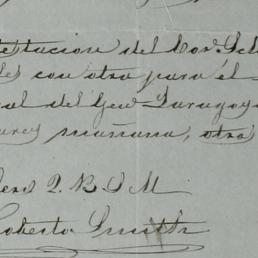 testacion del Cor. Del
des con otra para el
ral del Gen. Zaragoza
mañana, otra
Q. B. S. M.
Roberto Smith